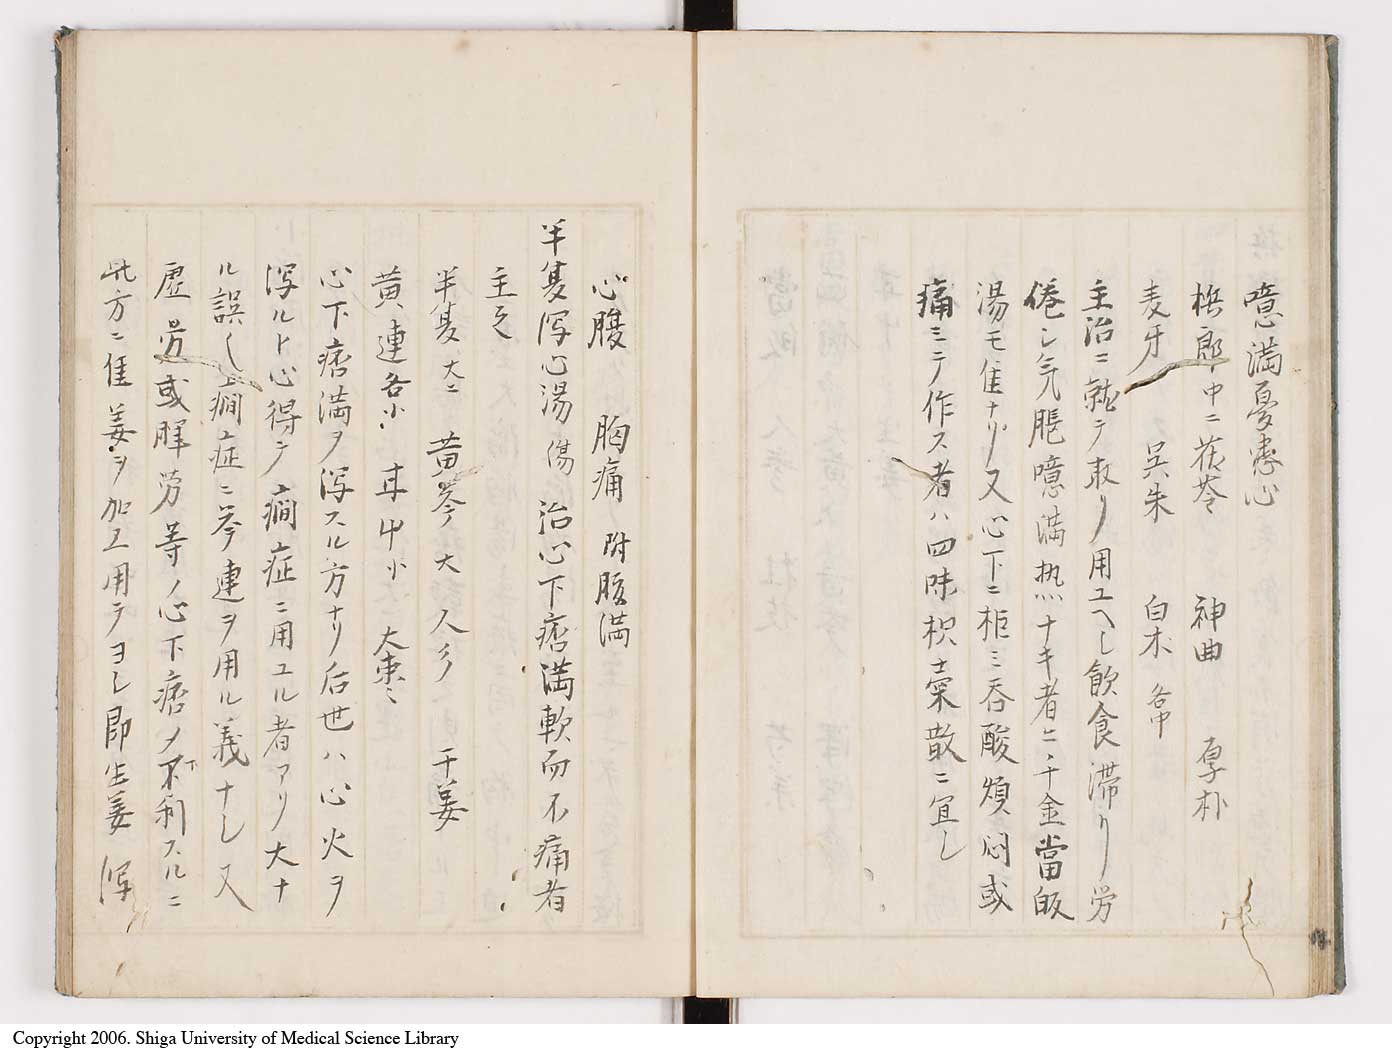 噫満憂患心
梹郎中ニ 茯苓 神曲 厚朴
麦牙 呉朱 白朮 各中
主治ニ就テ取リ用ユヘし飲食滞リ労
倦シ気脹噫満热ナキ者ニハ千金當皈
湯モ佳ナリ又心下ニ柜ミ呑酸煩悶或
痛ミヲ作ス者ハ四味枳壳散ニ宜し
心腹 胸痛 附腹満
半夏泻心湯 傷 治心下痞満軟而不痛者
主之
半夏大ニ 黄芩大 人々 干姜
黄連各小 甘中小 大枣ニ
心下痞満ヲ泻スル方ナリ后世ハ心火ヲ
泻ルト心得テ癇症ニ用ユル者アリ大ナ
ル誤し癇症ニ芩連ヲ用ル義ナし又
虚労或腪労等ノ心下痞ノ不利スルニ
此方ニ隹 姜ヲ加エ用テヨし即生姜泻
Copyright 2006. Shiga University of Medical Science Library